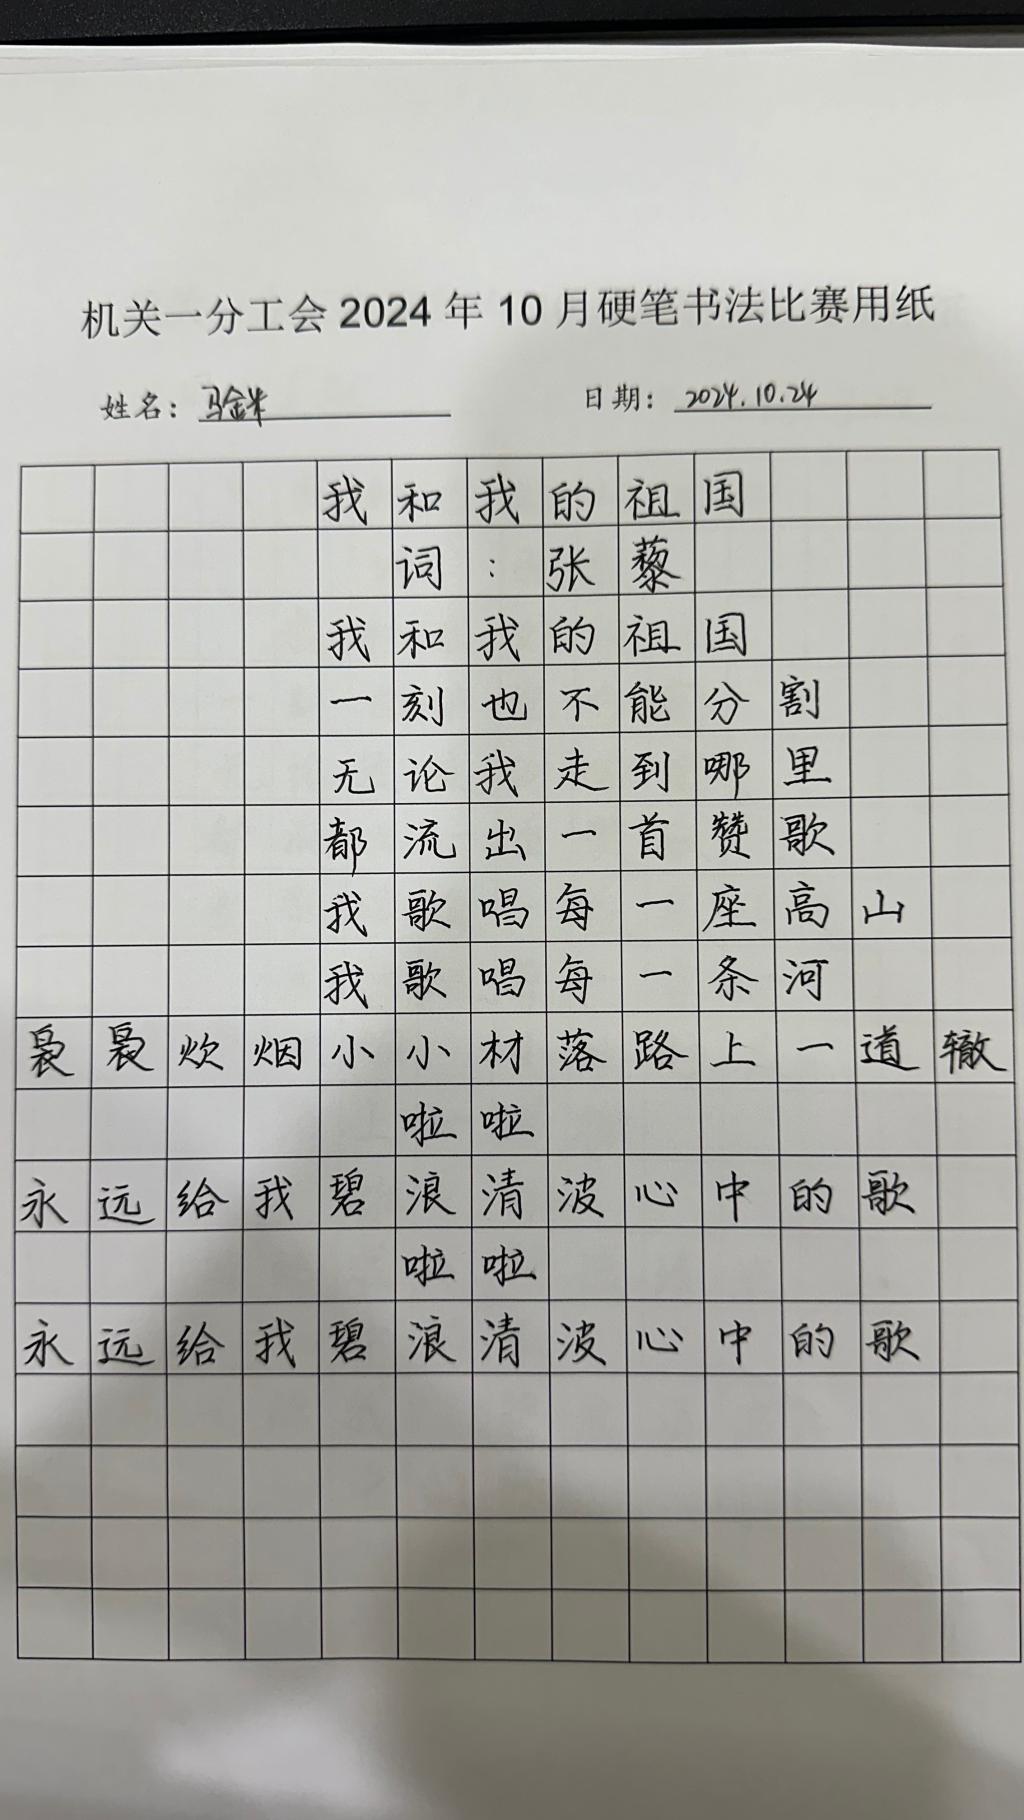 机关一分工会2024年10月硬笔书法比赛用纸
姓名：马金米 日期：2024.10.24
我和我的祖国
词：张藜
我和我的祖国
一刻也不能分割
无论我走到哪里
都流出一首赞歌
我歌唱每一座高山
我歌唱每一条河
袅袅炊烟小小村落路上一道辙
啦啦
永远给我碧浪清波心中的歌
啦啦
永远给我碧浪清波心中的歌